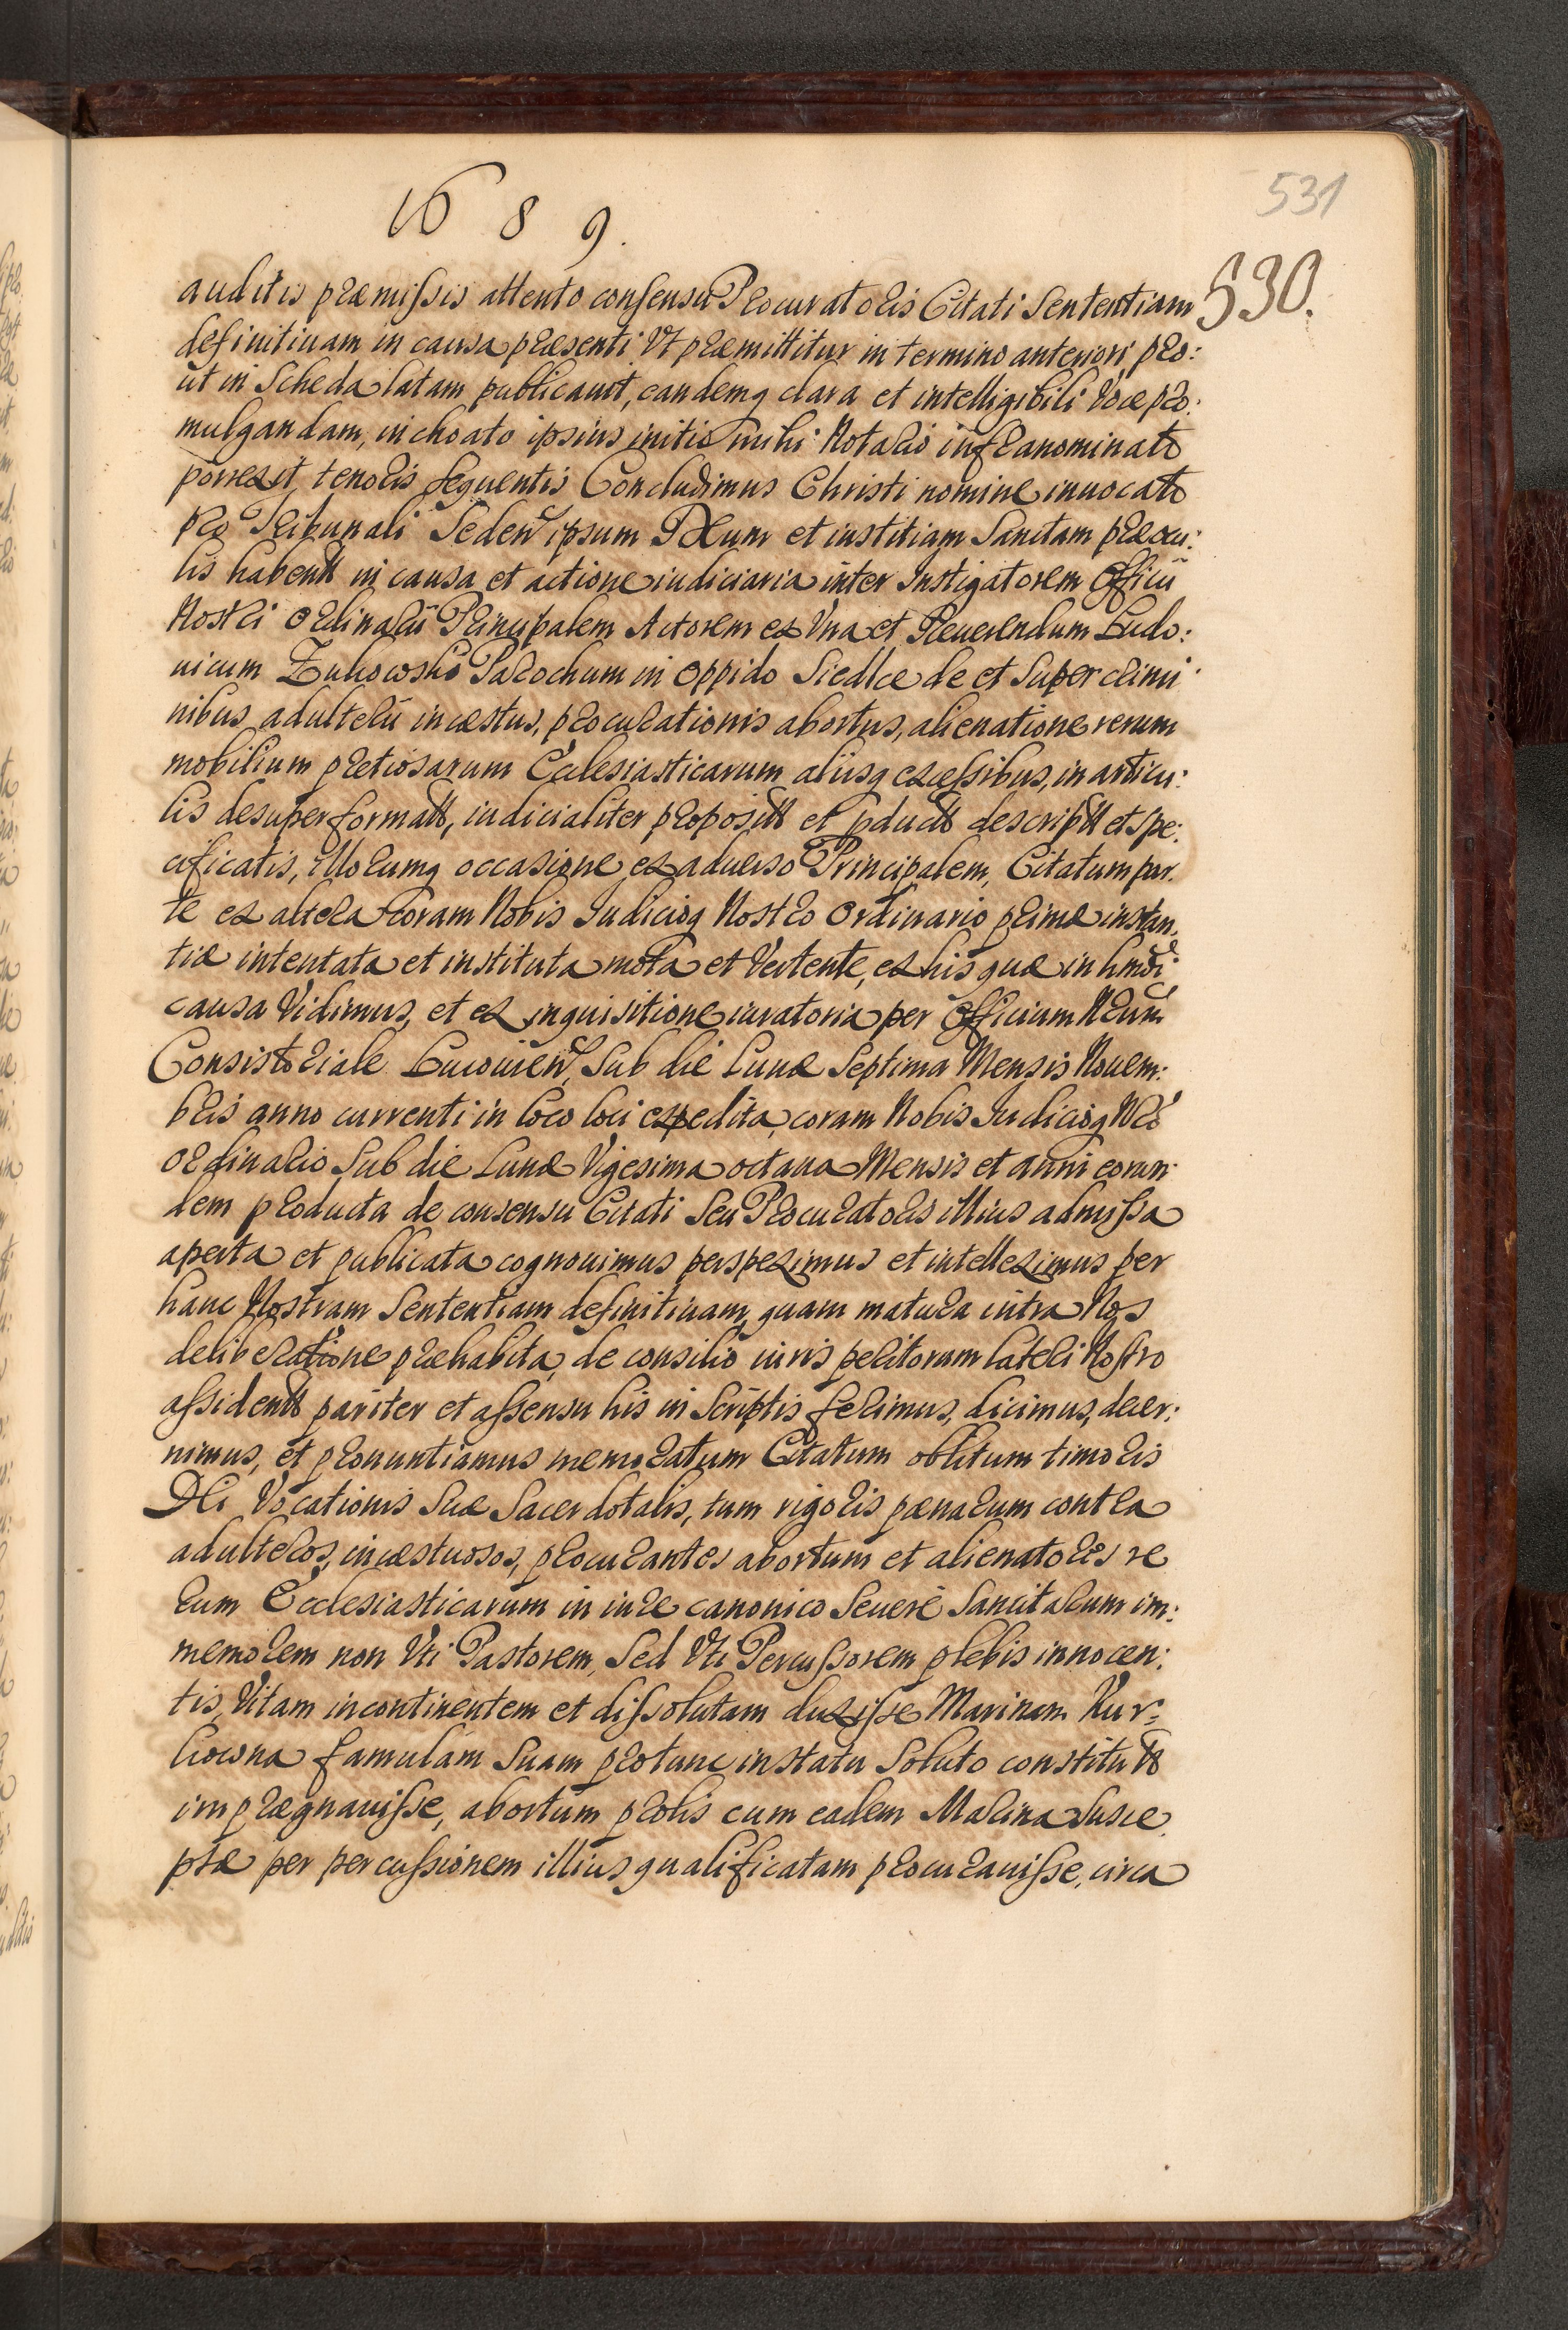 1689.
531
530.
auditis præmissis attento consensu Procuratoris Citati Sententiam
definitiuam in causa præsenti Vt præmittitur in termino anteriori, pro:
ut in Scheda latam publicauit, eandemq clara et intelligibili Voce pro:
mulgandam, inchoato ipsius initio mihi Notario infranominato
porrexit tenoris sequentis Concludimus Christi nomine inuocato
pro Tribunali Seden ipsum Deum et iustitiam Sanctam præ ocu:
lis haben in causa et actione iudiciaria inter Instigatorem Officii
Nostri Ordinarii Principalem Actorem ex Vna et Reuerendum Ludo:
uicum Zukowski Parochum in Oppido Siedlce de et Super crimi
nibus adulterii incæstus, procurationis abortus, alienatione rerum
mobilium prætiosarum Ecclesiasticarum aliisq excessibus, in articu:
lis desuper format, iudicialiter proposit et pduct descript et spe:
cificatis, illorumq occasione ex aduerso Principalem, Citatum par.
te ex altera coram Nobis Iudicioq Nostro Ordinario primæ instan,
tiæ intentata et instituta mota et Vertente, ex his quæ in hmdi
causa Vidimus, et ex inquisitione iuratoria per Officium Nrum
Consistoriale Lucouien, Sub die Lunæ Septima Mensis Nouem:
bris anno currenti in loco loci expedita, coram Nobis Iudicioq Nro
ordinario Sub die Lunæ Vigesima octaua Mensis et anni eorun
dem producta de consensu Citati Seu Procuratoris illius admissa
aperta et publicata cognouimus perspeximus et intelleximus per
hanc Nostram Sententiam definitiuam, quam matura intra Nos
deliberatione præhabita, de consilio iuris peritorum lateri Nostro
assident pariter et assensu his in Scriptis ferimus, dicimus, decer:
nimus, et pronuntiamus memoratum Citatum oblitum timoris
Dei Vocationis Suæ Sacerdotalis, tum rigoris pænarum contra
adulteros, incæstuosos, procurantes abortum et alienatores re
rum Ecclesiasticarum in iure canonico Seueré Sancitarum im:
memorem non Vti Pastorem, Sed Vti Percussorem plebis innocen:
tis, Vitam incontinentem et dissolutam duxisse Marinam Kur:
liowna famulam Suam protunc in statu Soluto constitut
imprægnauisse, abortum prolis cum eadem Marina Susce.
ptæ per percussionem illius qualificatam procurauisse, circa